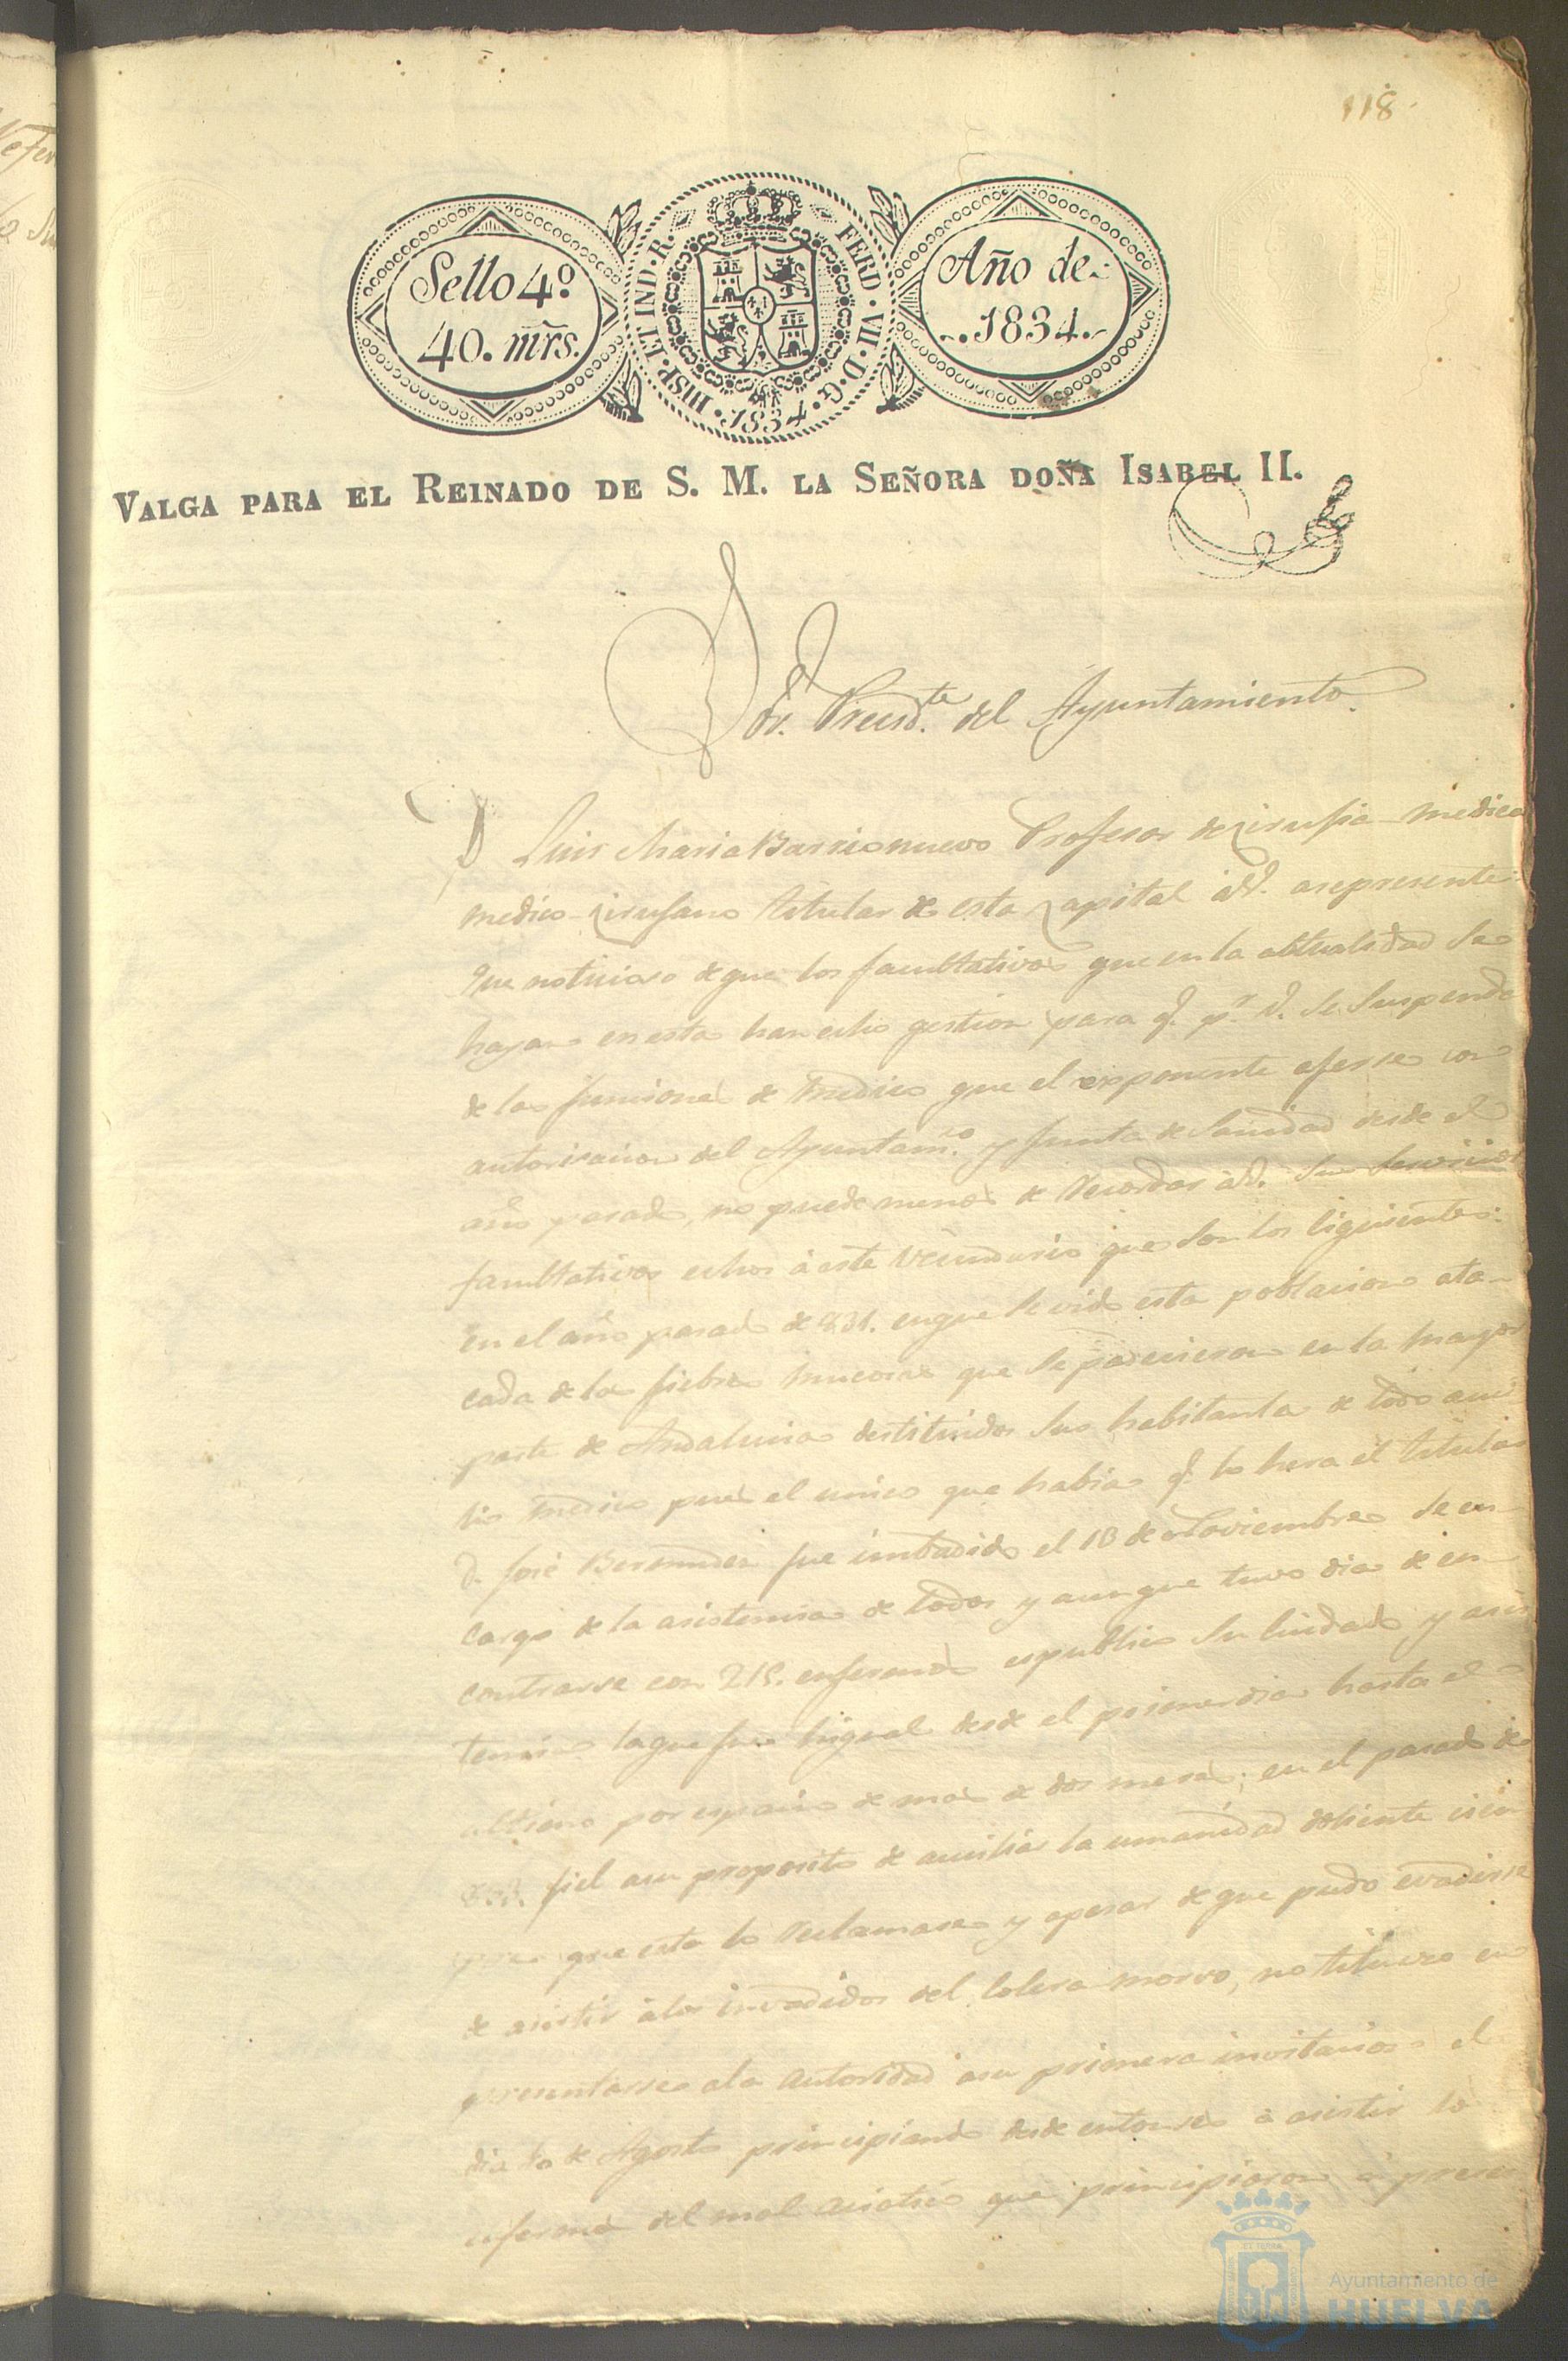 118.
Sello 4º
40. mrs.
HISP. ET IND. R. FERD. VII. D. G. 1834.
Año de
1834.
VALGA PARA EL REINADO DE S. M. LA SEÑORA DOÑA ISABEL II.
Sr. Presid.te del Ayuntamiento.
D Luis Maria Barrionuevo Profesor de Cirujia medica
medico Cirujano titular de esta Capital à V. arepresenta
que noticioso de que los facultativos que en la abtualidad se
hayan en esta han echo gestion para q. p.r V. se suspenda
de las funciones de Medico que el exponente eferse con
autorisacion del Ayuntam.to y Junta de Sanidad desde el
año pasado, no puede menos de recordar à V. sus servicios
facultativos echos à este vecindario que son los siguientes:
en el año pasado de 831. en que se vido esta poblacion ata-
cada de las fiebres mucosas que se padecieron en la mayor
parte de Andalucia destituidos sus habitantes de todo aucí
lio medico pues el unico que habia q. lo hera el titular
D. José Bermudez fue imbadido el 18 de Noviembre se en-
cargo de la asistencia de todos y aunque tuvo dia de en-
contrarse con 215. enfermos espublico su cuidado y asis
tencia laque fue higual desde el primer dia hasta el
ultimo por espacio de mas de dos meses; en el pasado de
833. fiel asu proposito de aucilia la umanidad doliente ciem
pre que esta lo reclamase y apesar de que pudo evadirse
de asistir à los invadidos del colera morvo, no titubeo en
presentarse ala Autoridad asu primera invitacion el
dia de Agosto principiando desde entonses à asistir lo
enfermos del mal asiatico que principiaron à
Ayuntamiento de
HUELVA